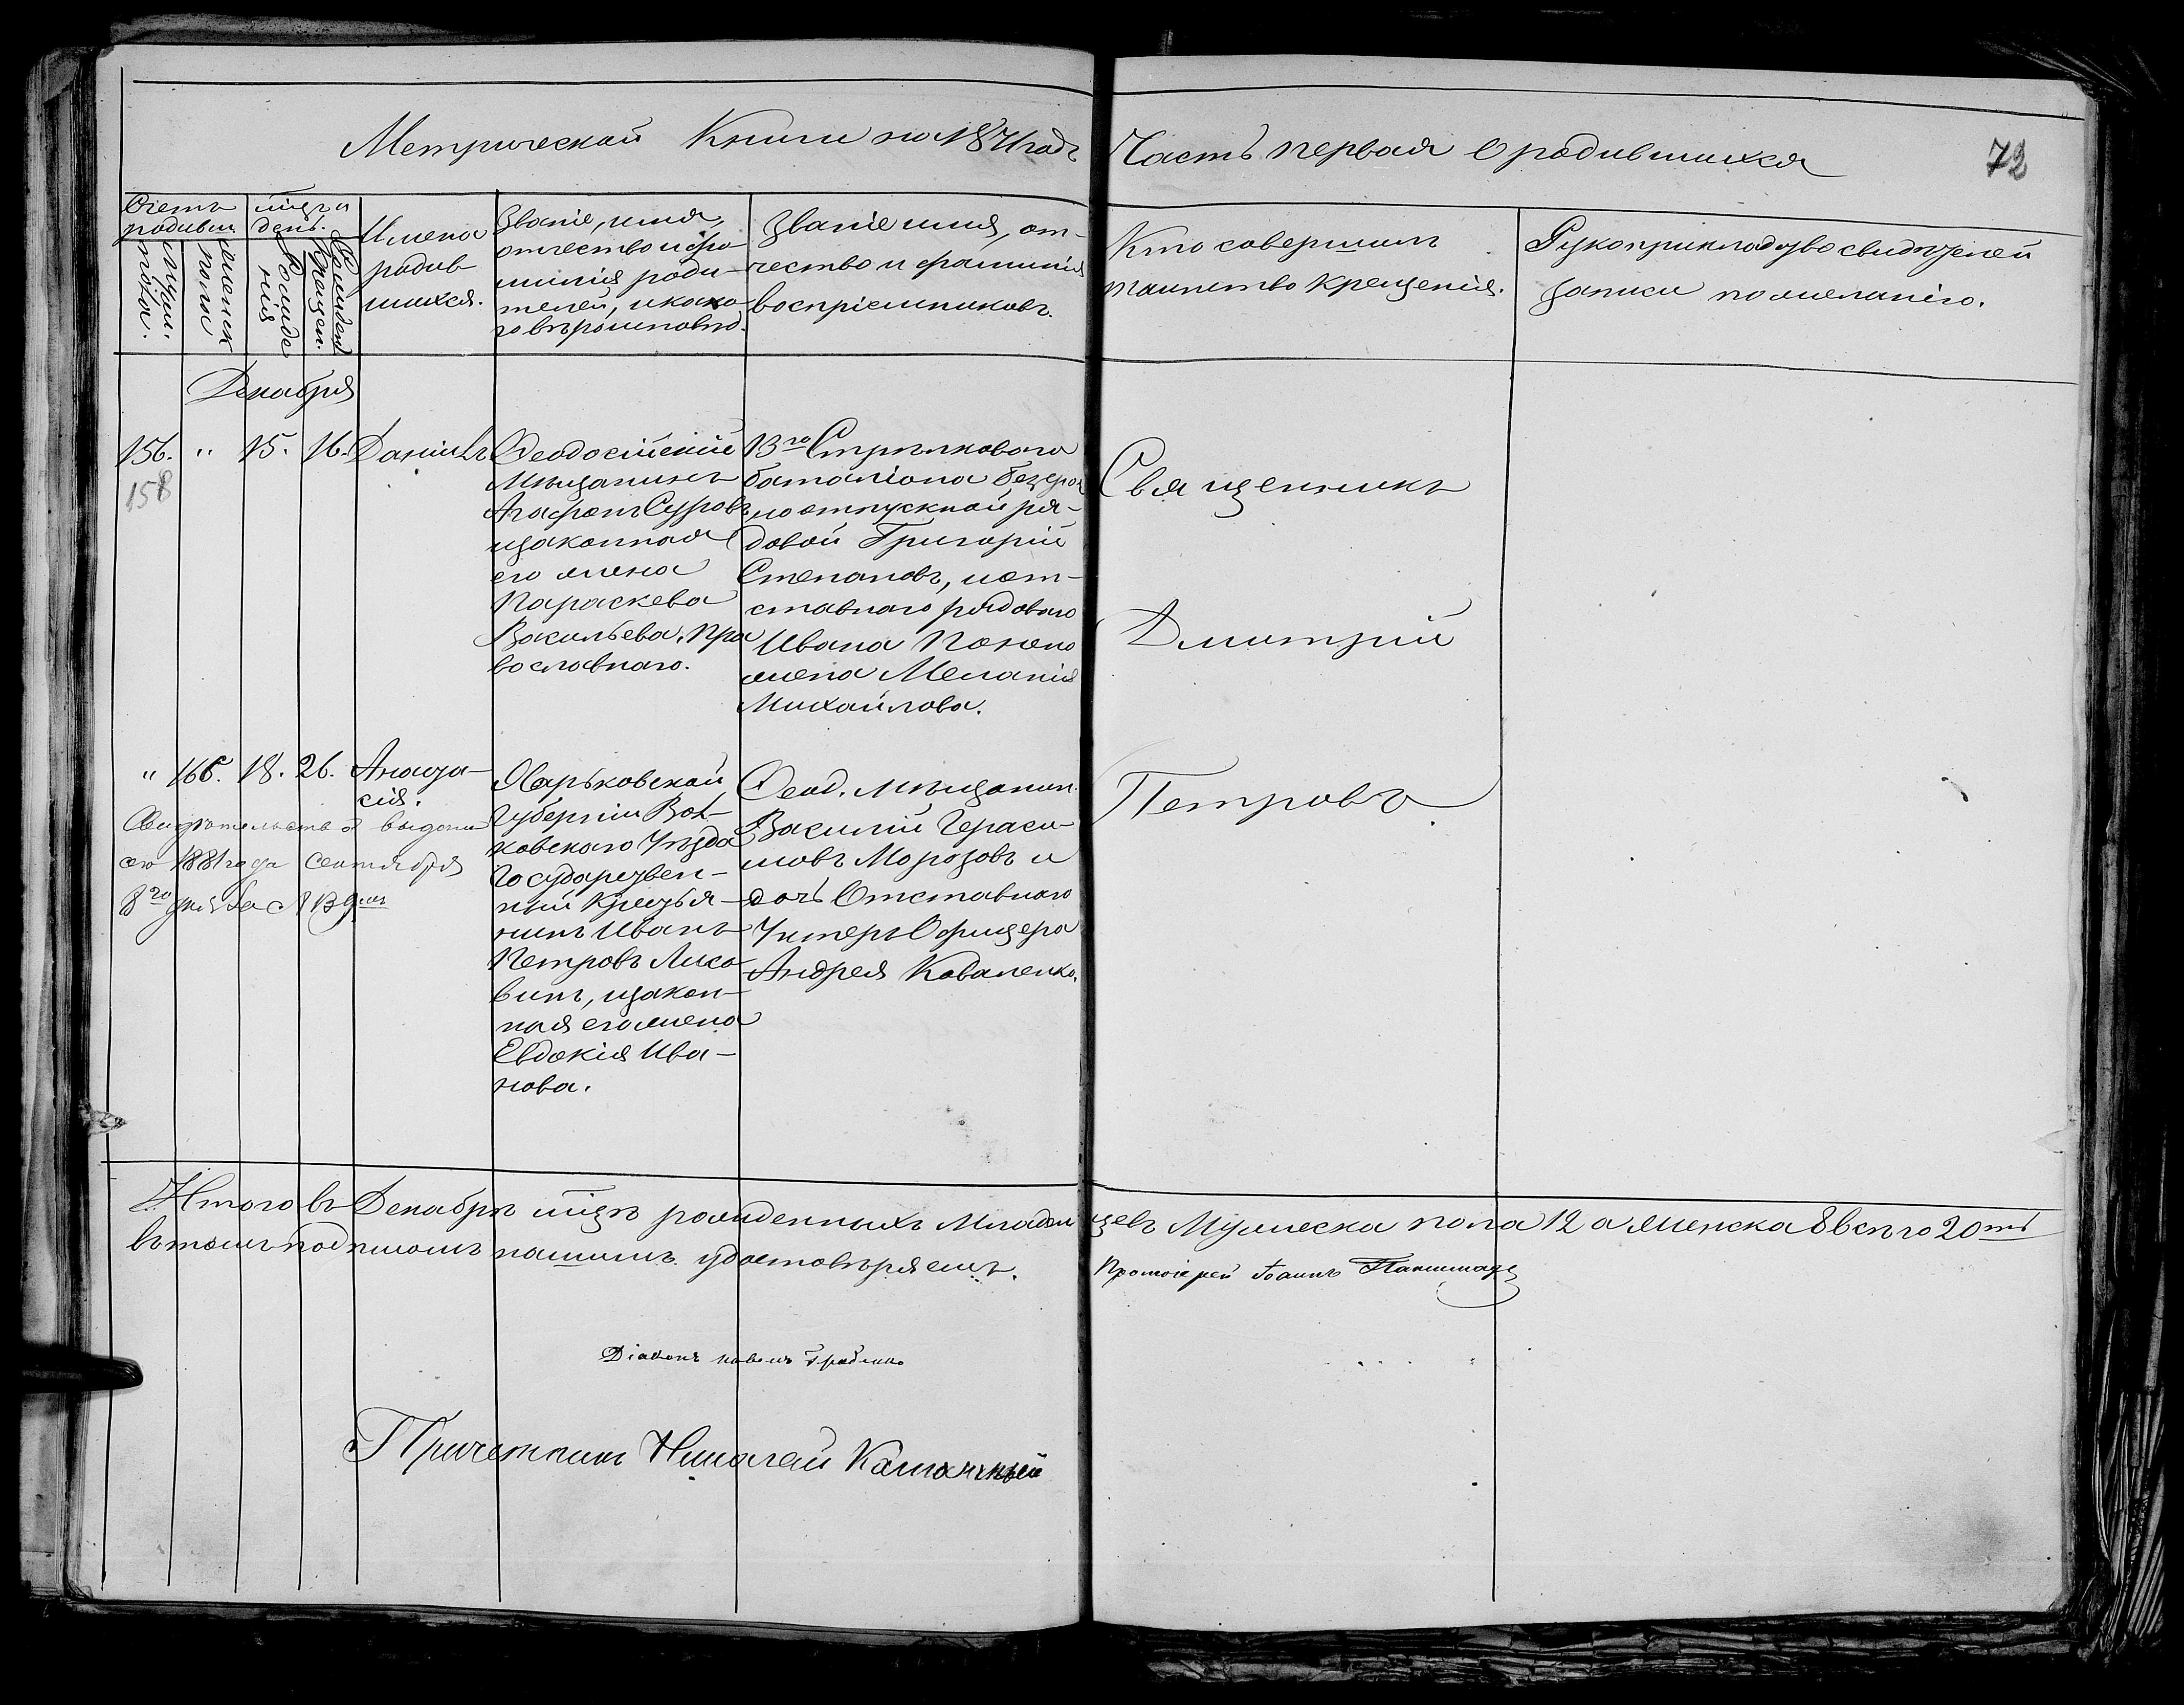 Метрической Книги на 1871 годъ
Часть первая о родившихся
72
Счетъ родивш.
мѣсяцъ и день.
мужеск. пола.
женск пола
Рожденія
Крещен.
Имена родив-
шихся.
Званіе, имя,
отчество и фа-
милія роди-
телей, и како-
го вѣроисповѣд.
Званіе имя, от-
чество и фамилія
воспріемниковъ.
Кто совершилъ
таинство Крещенія.
Рукоприкладство свидѣтелей
записи по желанію.
Декабря
156. " 15. 16. Даніилъ
158
Ѳеодосійскій
Мѣщанинъ
Агафонъ
изаконная
его жена
Параскева
Васильева, Пра
вославнаго.
13го Стрѣлковаго
баталіона безсроч
но отпускной ря-
довой Григорій
Степановъ, иот-
ставнаго рядового
Ивана
жена Меланія
Михайлова.
Священникъ
Дмитрій
Петровъ
" 166. 18. 26. Анаста-
сія.
Свидѣтельство выдано
1881 года Сентября
8го дня за №
Харьковской
Губерніи Вол-
ковскаго Уѣзда
Государствен-
ный Крестья-
нинъ Иванъ
Петровъ Лихо
винъ, изакон-
ная его жена
Евдокія Ива-
нова.
Ѳеод. мѣщанин.
Василій Гераси-
мовъ Морозовъ и
дочь Отставного
Унтеръ Офицера
Андрея Коваленко.
Итого въ Декабрѣ мѣсяцѣ рожденныхъ Младенцевъ Мужеска пола 12 а женска 8 всего 20ть
въ томъ подписомъ нашимъ удостовѣряемъ.
Протоіерей Іоаннъ
Діаконъ Павелъ
Причетникъ Николай